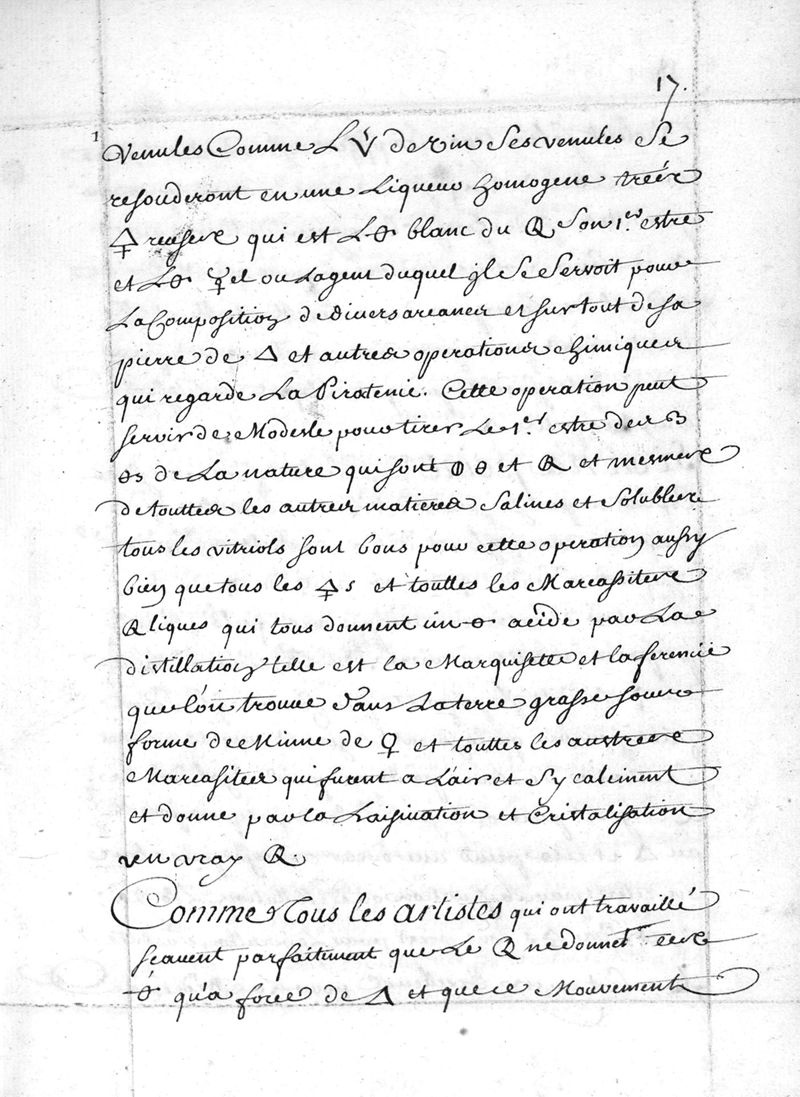 17.
1
venules Comme L'🜊 de vin Ses venules Se
resouderont en une Liqueur homogene tres
🜍reuse qui est L🜔 blanc du 🜖 Son 1er estre
et L🜔 ☿el ou L'agent duquel jl Se Servoit pour
La Composition de divers arcanes et sur tout de sa
pierre de 🜂 et autres operations chimiques
qui regarde La Pirotenie. Cette operation peut
servir de Modesle pour tirer Le 1er estre des 3
🜔s de La nature qui sont 🜕 🜔 et 🜖 et mesme
de touttes les autres matieres Salines et Solubles
tous les vitriols sont bons pour cette operation aussy
bien que tous les 🜍s et touttes les Marcassites
🜖liques qui tous donnent un 🜔 acide par La
distillation telle est la Marquisette et la
que l'on trouve dans La terre grasse sous
forme de Minne de ♀ et touttes les austres
Marcasites qui furent a L'air et S'y calcinent
et donne par la Laisivation et Cristalisation
un vray 🜖.
Comme Tous les artistes qui ont travaillé
scavent parfaitement que Le 🜖 ne donne
🜔 qu'a force de 🜂 et que ce Mouvement